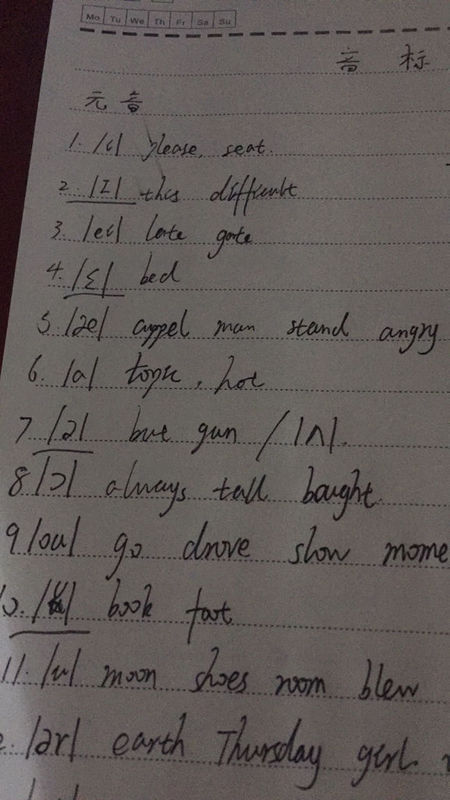 Mo Tu We Th Fr Sa Su
音标
元音
1. /i/ please, seat.
2. /I/ this difficult
3. /ei/ late gate
4. /ε/ bed
5. /æ/ appel man stand angry
6. /a/ topic, hot
7. /ə/ but gun / /ʌ/.
8 /ɔ/ always tall bought.
9 /ou/ go drove slow mome
book foot
11. /u/ moon shoes room blew
/ər/ earth Thursday girl